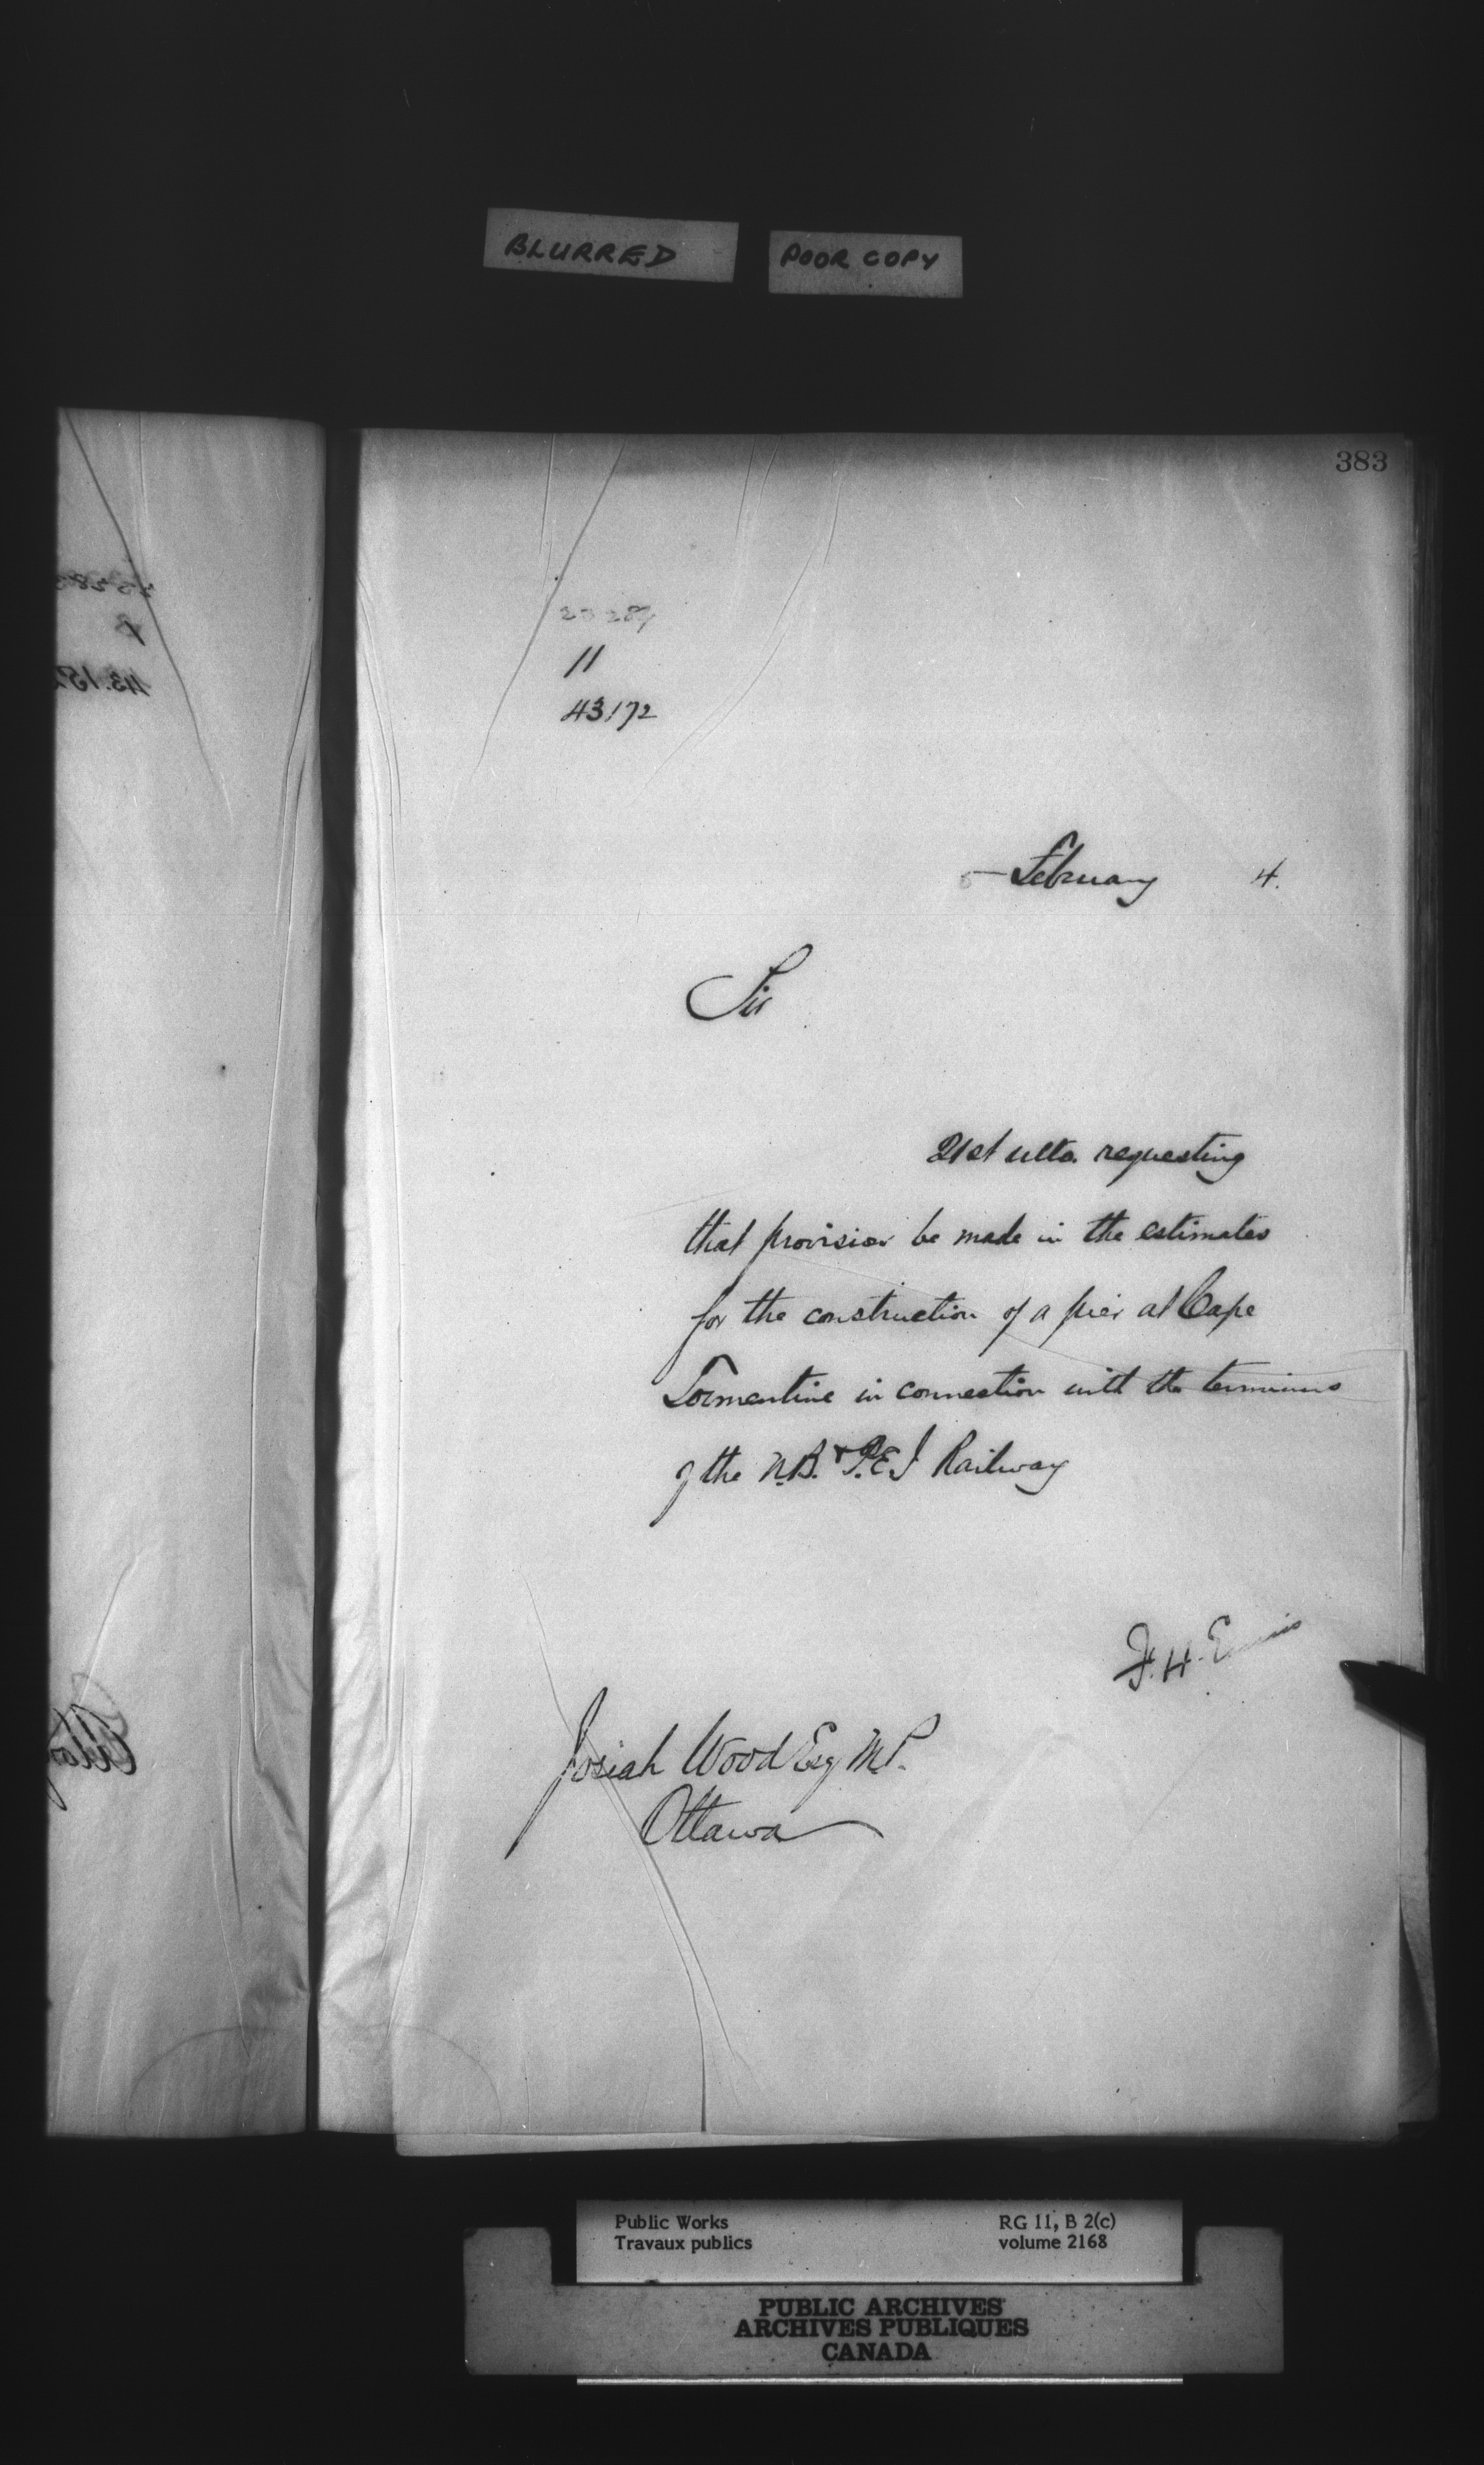 BLURRED
POOR COPY
383
11
43172
5 February 4.
Sir
21st ulto. requesting
that provision be made in the estimates
for the construction of a pier at Cape
Tormentine in connection with the terminus
of the N.B. & P.E.I Railway
F. H. Ennis
Josiah Wood Esq M.P.
Ottawa
Public Works
Travaux publics
RG 11, B 2(c)
volume 2168
PUBLIC ARCHIVES
ARCHIVES PUBLIQUES
CANADA